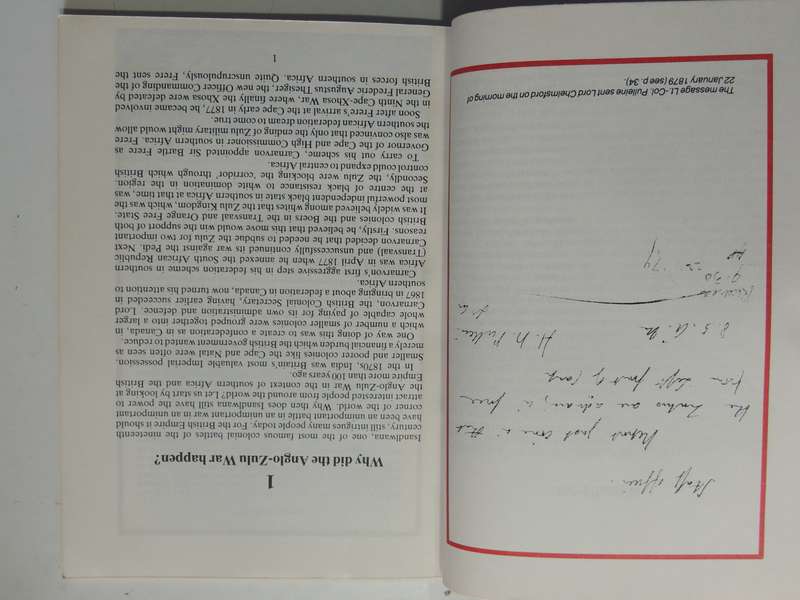 Staff Officer.
Report just come in that
the Zulus are advancing in force
from Left front of Camp.
8. 5. a.m.
Received
9.30
The message Lt.-Col. Pulleine sent Lord Chelmsford on the morning of
22 January 1879 (see p. 34).
1
Why did the Anglo-Zulu War happen?
Isandlwana, one of the most famous colonial battles of the nineteenth
century, still intrigues many people today. For the British Empire it should
have been an unimportant battle in an unimportant war in an unimportant
corner of the world. Why then does Isandlwana still have the power to
attract interested people from around the world? Let us start by looking at
the Anglo-Zulu War in the context of southern Africa and the British
Empire more than 100 years ago.
In the 1870s, India was Britain's most valuable Imperial possession.
Smaller and poorer colonies like the Cape and Natal were often seen as
merely a financial burden which the British government wanted to reduce.
One way of doing this was to create a confederation as in Canada, in
which a number of smaller colonies were grouped together into a larger
whole capable of paying for its own administration and defence. Lord
Carnarvon, the British Colonial Secretary, having earlier succeeded in
1867 in bringing about a federation in Canada, now turned his attention to
southern Africa.
Carnarvon's first aggressive step in his federation scheme in southern
Africa was in April 1877 when he annexed the South African Republic
(Transvaal) and unsuccessfully continued its war against the Pedi. Next
Carnarvon decided that he needed to subdue the Zulu for two important
reasons. Firstly, he believed that this move would win the support of both
British colonies and the Boers in the Transvaal and Orange Free State.
It was widely believed among whites that the Zulu Kingdom, which was the
most powerful independent black state in southern Africa at that time, was
at the centre of black resistance to white domination in the region.
Secondly, the Zulu were blocking the 'corridor' through which British
control could expand to central Africa.
To carry out his scheme, Carnarvon appointed Sir Bartle Frere as
Governor of the Cape and High Commissioner in southern Africa. Frere
was also convinced that only the ending of Zulu military might would allow
the southern African federation dream to come true.
Soon after Frere's arrival at the Cape early in 1877, he became involved
in the Ninth Cape-Xhosa War, where finally the Xhosa were defeated by
General Frederic Augustus Thesiger, the new Officer Commanding of the
British forces in southern Africa. Quite unscrupulously, Frere sent the
1